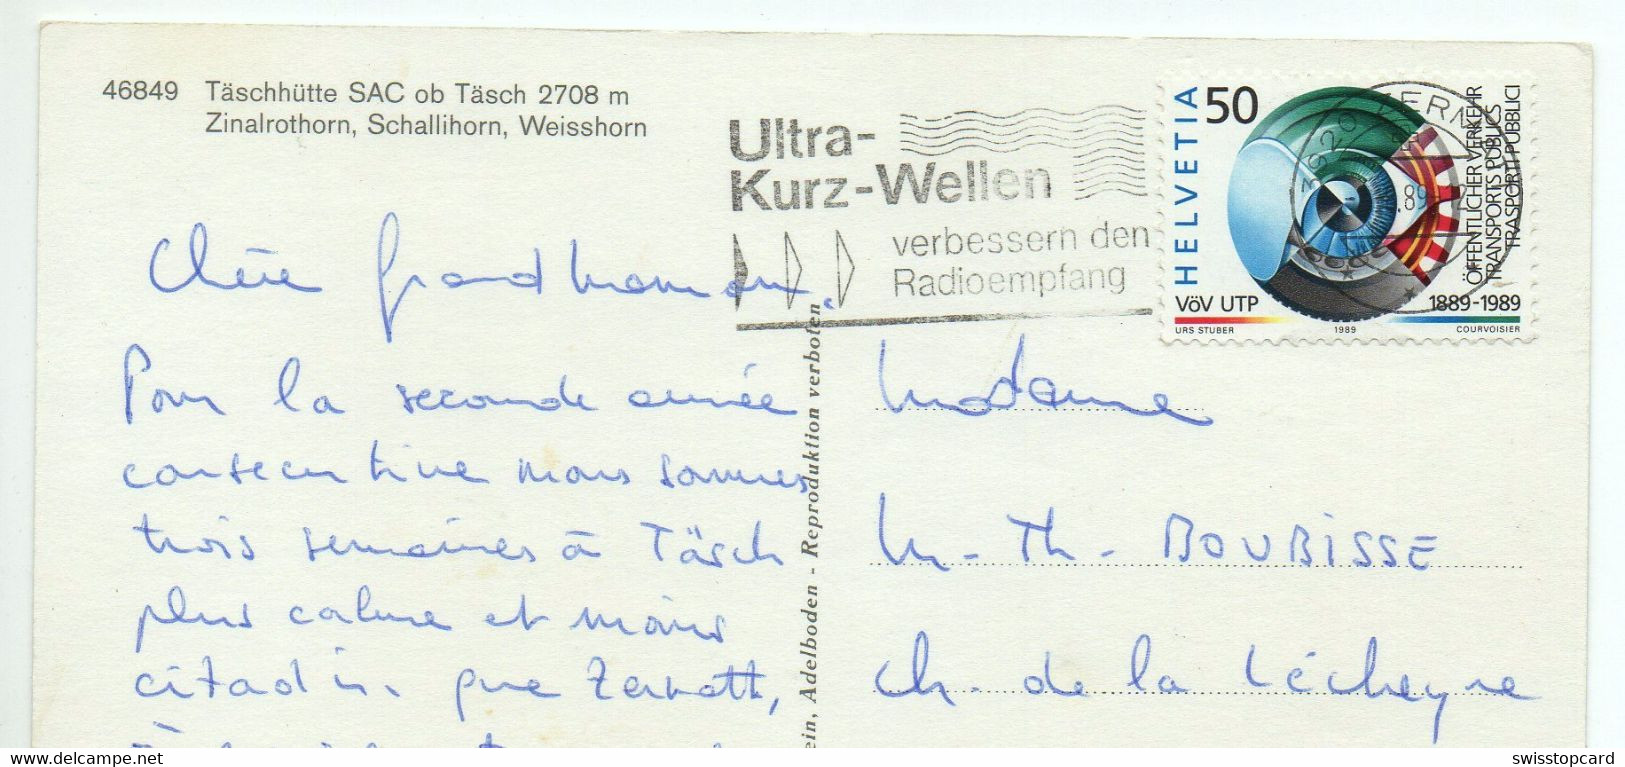 46849 Täschhütte SAC ob Täsch 2708 m
Zinalrothorn, Schallihorn, Weisshorn
Ultra-
Kurz-Wellen
verbessern den
Radioempfang
HELVETIA 50
3920 ZERM
.89
ÖFFENTLICHER VERKEHR
TRANSPORTS PUBLICS
TRASPORTI PUBBLICI
VöV UTP 1889-1989
URS STUBER 1989 COURVOISIER
Chère grandmaman.
Pour la seconde année
consecutive nous sommes
trois semaines à Täsch
plus calme et moins
citadin que Zermatt,
ein, Adelboden - Reproduktion verboten
Madame
M-Th- BOUBISSE
Ch. de la Lécheyre
www.delcampe.net
swisstopcard